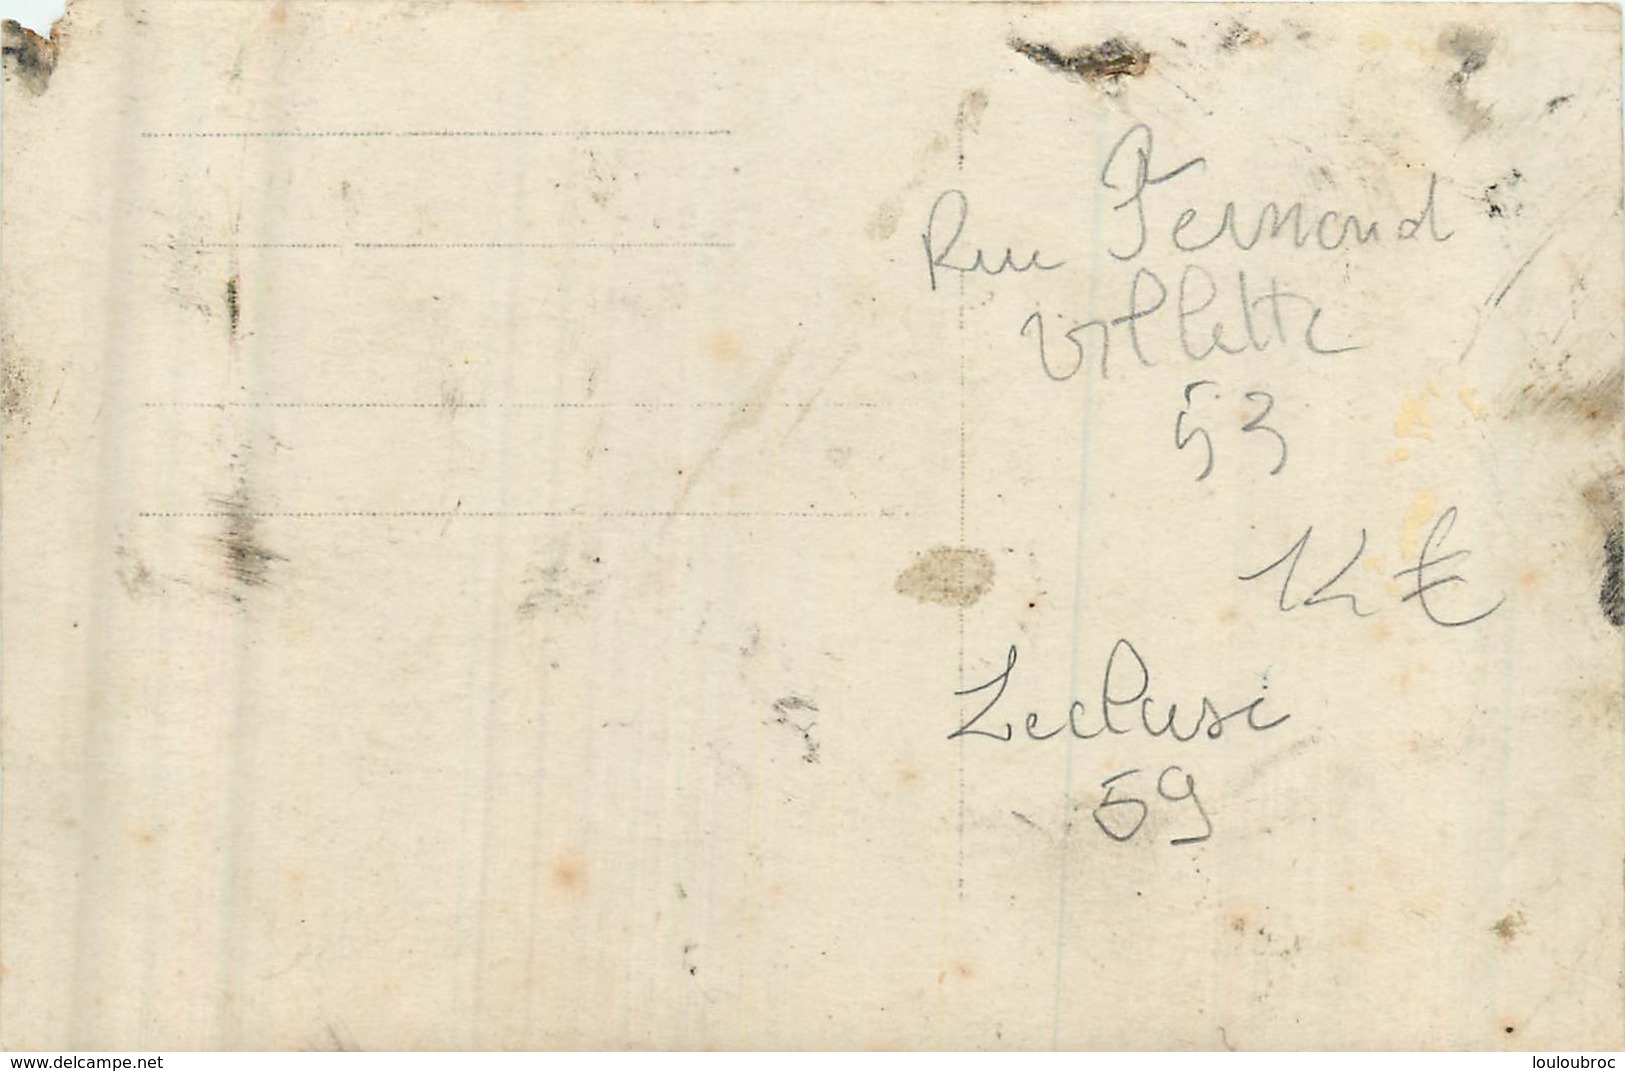 Rue Fernand
Villette
53
12 €
Lecluse
59
www.delcampe.net
louloubroc